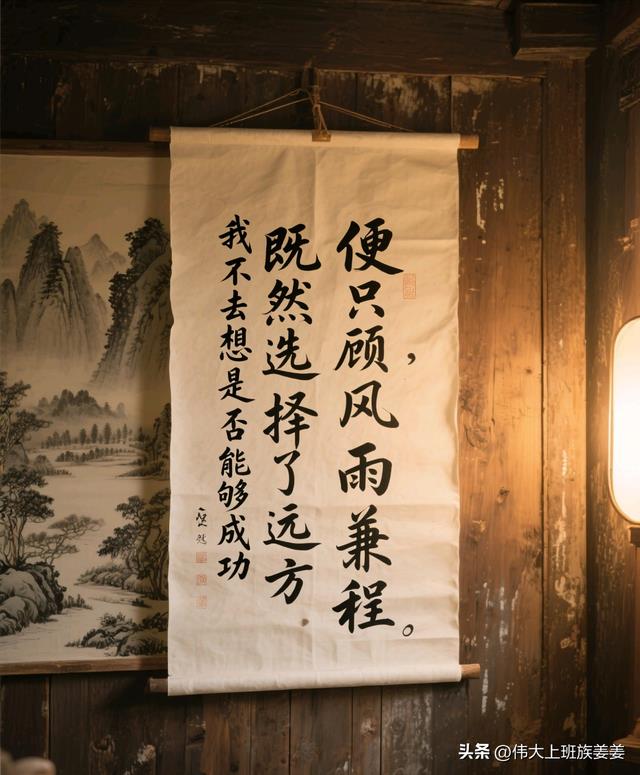 我不去想是否能够成功
既然选择了远方
便只顾，风雨兼程。
头条 @伟大上班族姜姜